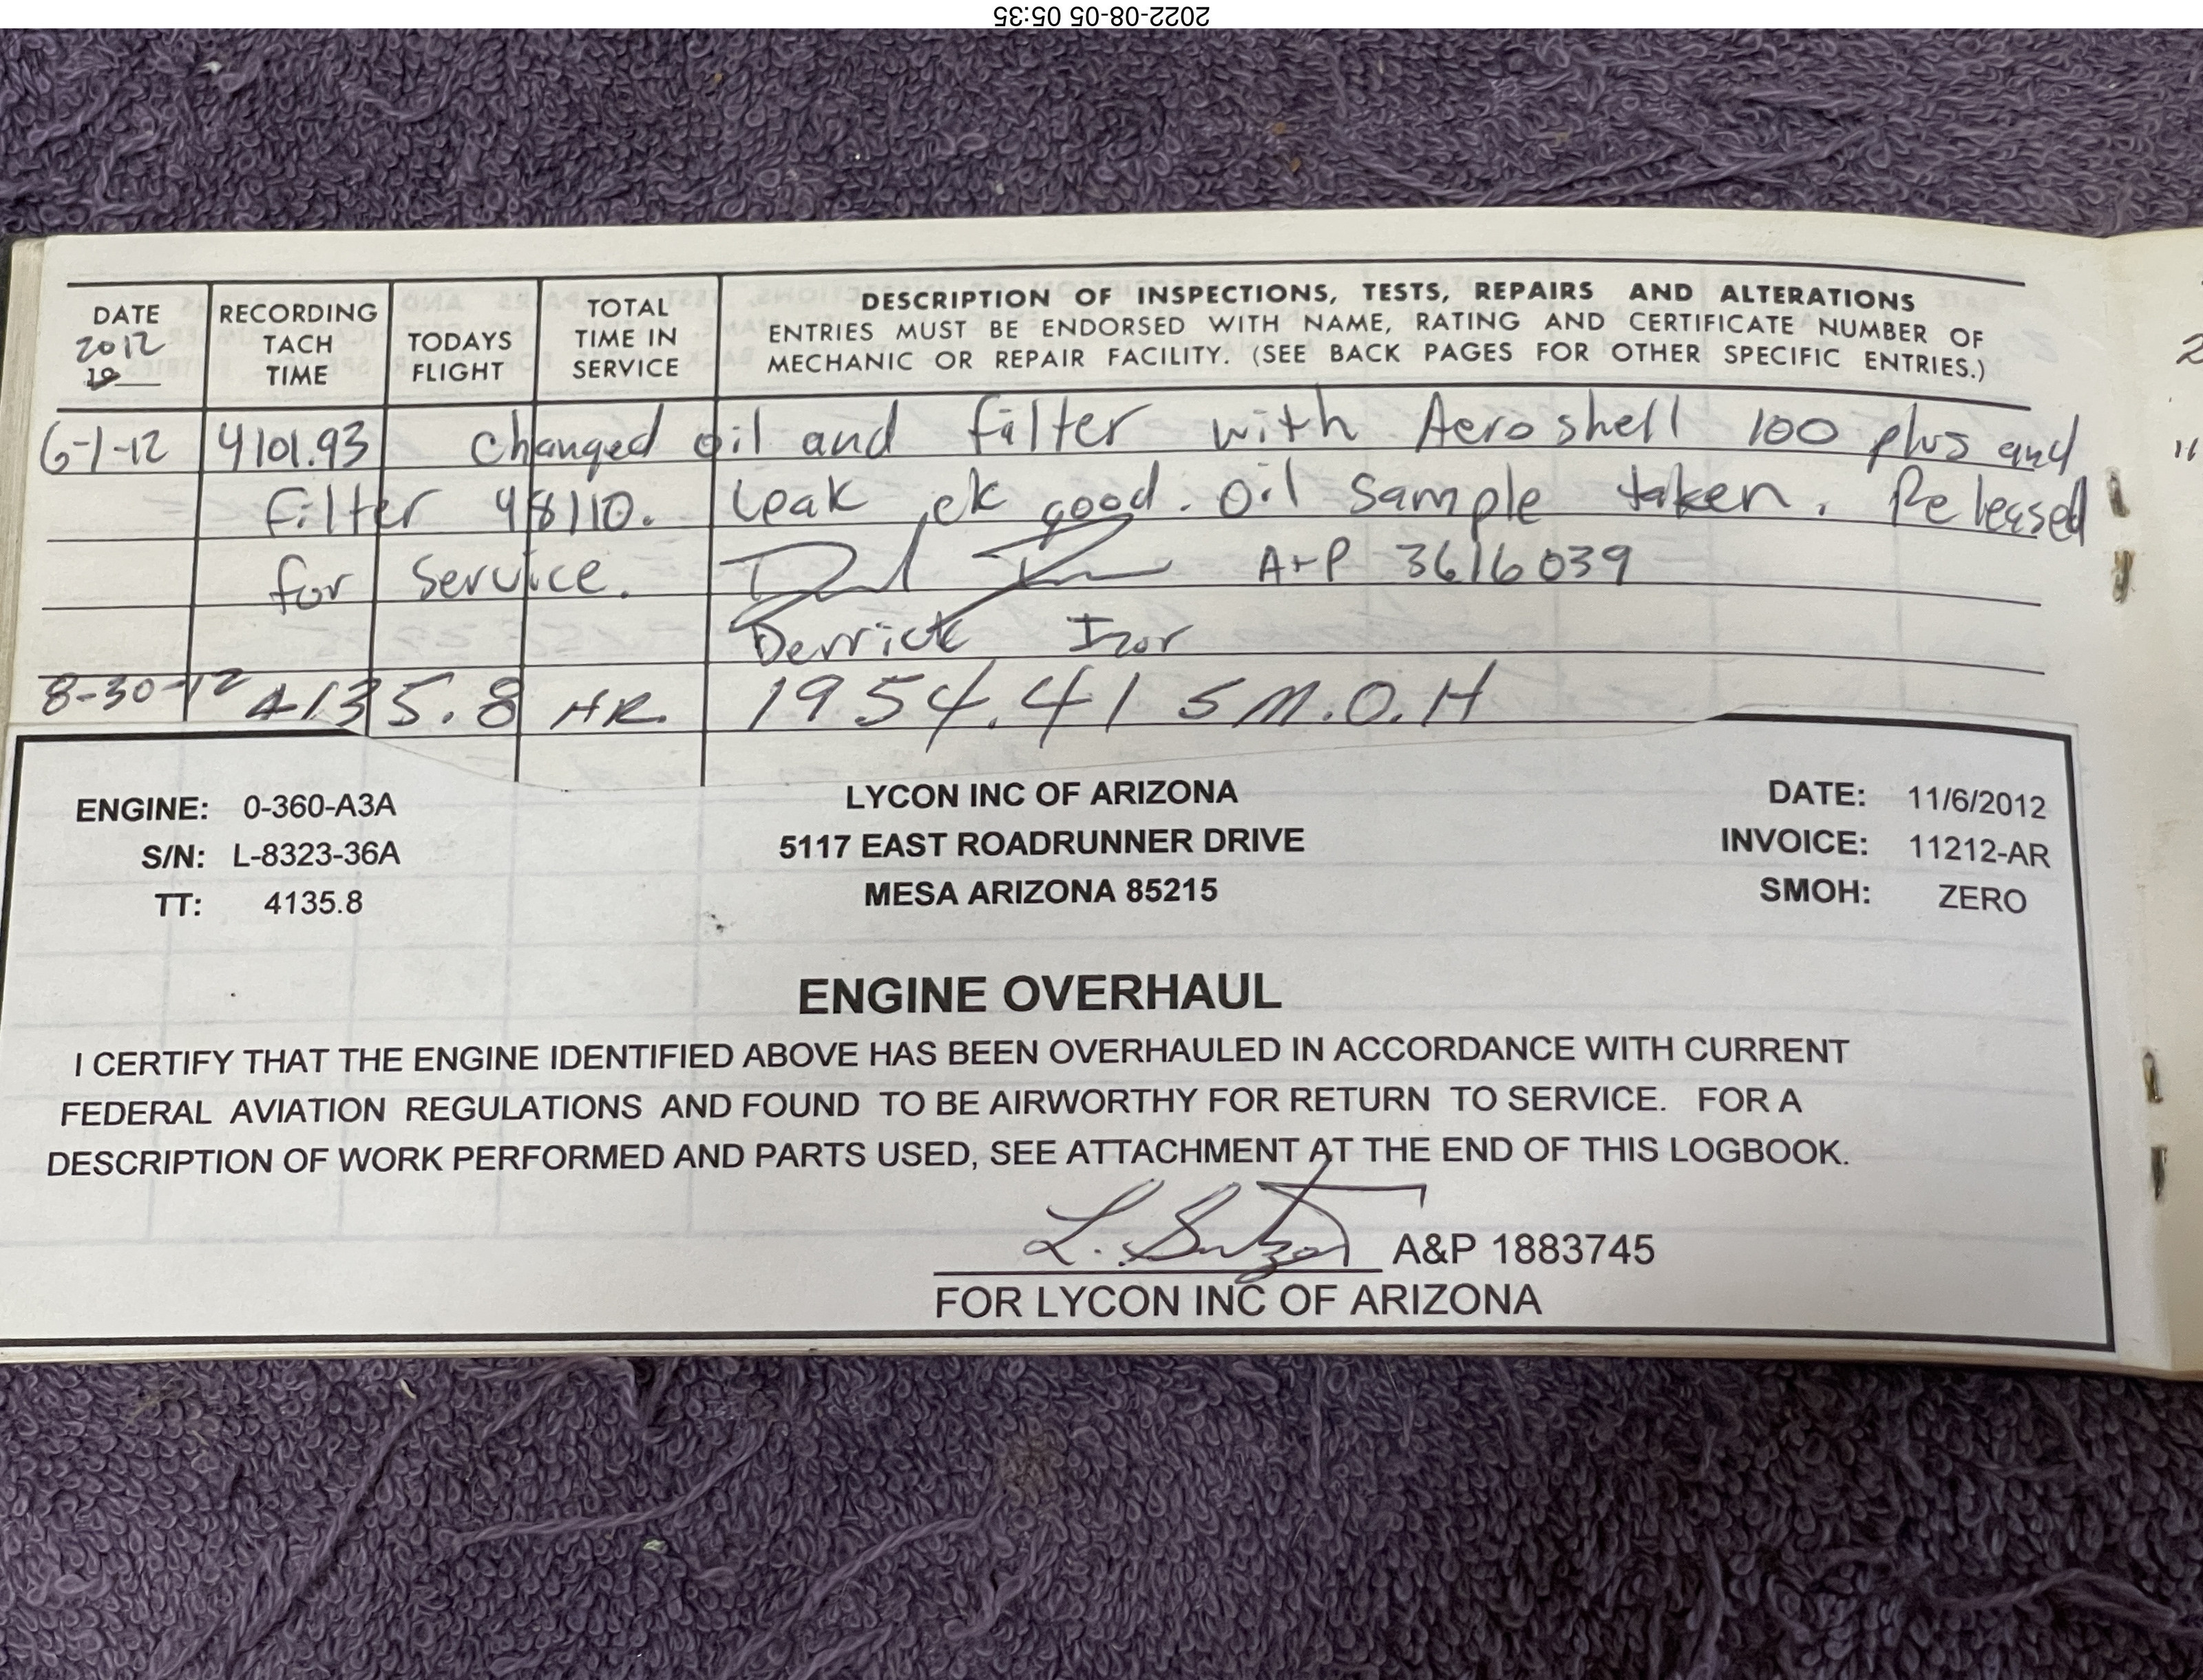 2022-08-05 05:35
DATE
2012
19
RECORDING
TACH
TIME
TODAYS
FLIGHT
TOTAL
TIME IN
SERVICE
DESCRIPTION OF INSPECTIONS, TESTS, REPAIRS AND ALTERATIONS
ENTRIES MUST BE ENDORSED WITH NAME, RATING AND CERTIFICATE NUMBER OF
MECHANIC OR REPAIR FACILITY. (SEE BACK PAGES FOR OTHER SPECIFIC ENTRIES.)
6-1-12 4101.93 Changed oil and filter with Aeroshell 100 plus and
filter 48110. Leak ck good. Oil sample taken. Released
for service. A+P 3616039
Derrick Izor
8-30-12 4135.8 HR. 1954.41 S M.O.H
ENGINE: 0-360-A3A
S/N: L-8323-36A
TT: 4135.8
LYCON INC OF ARIZONA
5117 EAST ROADRUNNER DRIVE
MESA ARIZONA 85215
DATE: 11/6/2012
INVOICE: 11212-AR
SMOH: ZERO
ENGINE OVERHAUL
I CERTIFY THAT THE ENGINE IDENTIFIED ABOVE HAS BEEN OVERHAULED IN ACCORDANCE WITH CURRENT
FEDERAL AVIATION REGULATIONS AND FOUND TO BE AIRWORTHY FOR RETURN TO SERVICE. FOR A
DESCRIPTION OF WORK PERFORMED AND PARTS USED, SEE ATTACHMENT AT THE END OF THIS LOGBOOK.
A&P 1883745
FOR LYCON INC OF ARIZONA